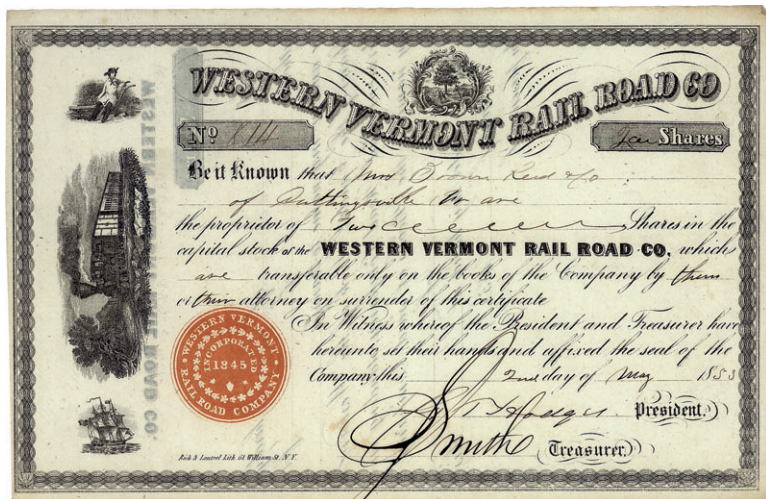 WESTERN VERMONT RAIL ROAD CO
Nº 814
Shares
Be it Known that
of Cuttingsville Vt are
the proprietor of Two Shares in the
capital stock of the WESTERN VERMONT RAIL ROAD CO, which
are transferable only on the books of the Company by them
or their attorney on surrender of this certificate
In Witness whereof the President and Treasurer have
hereunto set their hands and affixed the seal of the
Company this 2nd day of May 1853
President.
Smith Treasurer.
WESTERN VERMONT
RAIL ROAD COMPANY
INCORPORATED
1845
Lith 61 William St. N.Y.